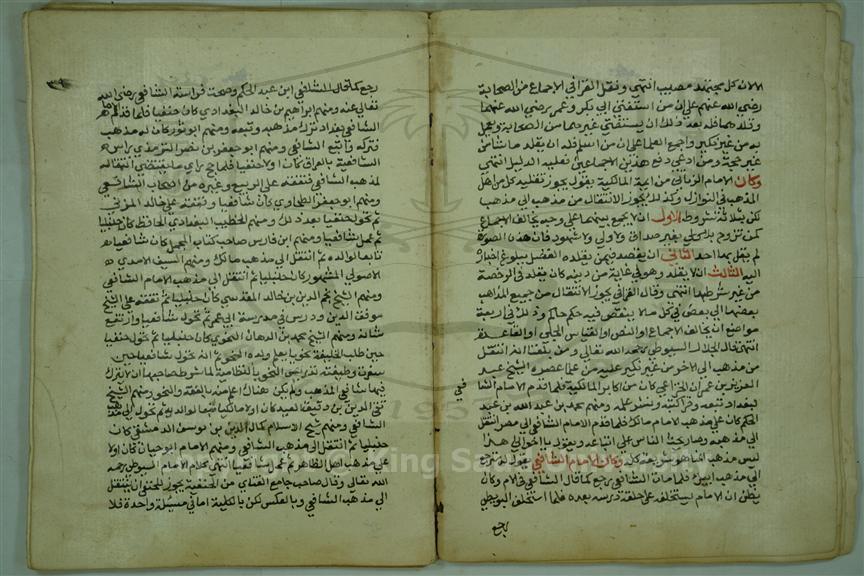 الان كل مجتهد مصيب انتهى ونقل القرافي الاجماع من الصحابة
رضي الله عنهم على ان من استفتى ابي بكر وعمر رضي الله عنهما
وقلدهما فله بعد ذلك ان يستفتي غيرهما من الصحابة ويعمل
به من غير نكير واجمع العلماء على ان من اسلم فله ان يقلد ما شاء من
غير حجة ومن ادعى دفع هذين الاجماعين فعليه الدليل انتهى
وكان الامام الزناتي من ايمة المالكية يقول يجوز تقليد كل من اهل
المذهب في النوازل وكذلك يجوز الانتقال من مذهب الى مذهب
لكن بثلاثة شروط الاول ان لا يجمع بينهما على وجه يخالف الاجماع
كمن تزوج بلا ولي بغير صداق ولا ولي ولا شهود فان هذه الصورة
لم يقل بها احد الثاني ان يعتقد فيمن يقلده الفضل ببلوغ اخباره
اليه الثالث ان لا يقلد وهو في عماية من دينه كان يقلد في الرخصة
من غير شرطها انتهى وقال القرافي يجوز الانتقال من جميع المذاهب
بعضها الى بعض في كل ما لا ينتقض فيه حكم حاكم وذلك في اربعة
مواضع ان يخالف الاجماع او النص او القياس الجلي او القاعدة
انتهى قال الجلال السيوطي رحمه الله تعالى وممن بلغنا انه انتقل
من مذهب الى الاخر من غير نكير عليه من علما عصره الشيخ عبد
العزيز بن عمران الخزاعي كان من اكابر المالكية فلما قدم الامام الشا
فعي
لبغداد تبعه وقرا كتبه ونشر علمه ومنهم محمد بن عبد الله بن عبد
الحكم كان على مذهب الامام مالك فلما قدم الامام الشافعي الى مصر انتقل
الى مذهبه وصار يحث الناس على اتباعه ويقول يا اخواني هذا
ليس مذهب انما هو شريعة كله وكان الامام الشافعي يقول له سترجع
الى مذهب ابيك فلما مات الشافعي رجع كما قال الشافعي وكان
يظن ان الامام يستخلفه على حلقة درسه بعده فلما استخلف البويطي
رجع
رجع كما قال الشافعي ابن عبد الحكم وصحت فراسة الشافعي رضي الله
تعالى عنه ومنهم ابراهيم بن خالد البغدادي كان حنفيا فلما قدم
الشافعي بغداد ترك مذهبه وتبعه ومنهم ابو ثور كان له مذهب
فتركه واتبع الشافعي ومنهم ابو جعفر بن نصر الترمذي راس
الشافعية بالعراق كان اولا حنفيا فلما حج راي ما يقتضي انتقاله
لمذهب الشافعي فتفقه على الربيع وغيره من اصحاب الشافعي
ومنهم ابو جعفر الطحاوي كان شافعيا وتفقه على خاله المزني
ثم تحول حنفيا بعد ذلك ومنهم الخطيب البغدادي الحافظ كان حنبليا
ثم عمل شافعيا ومنهم ابن فارس صاحب كتاب المجمل كان شافعيا
تابعا لوالده ثم انتقل الى مذهب مالك ومنهم السيف الامدي
الاصولي المشهور كان حنبليا ثم انتقل الى مذهب الامام الشافعي
ومنهم الشيخ نجم الدين بن خالد المقدسي كان حنبليا ثم تفقه على الشيخ
موفق الدين ودرس في مدرسة ابي عمر ثم تحول شافعيا وارتفع
شانه ومنهم الشيخ محمد بن الدهان النحوي كان حنبليا ثم تحول حنفيا
حين طلب الخليفة نحويا يعلم ولده النحو ثم انه تحول شافعيا حين
شغرت وظيفة تدريس النحو بالنظامية لما شرط صاحبها ان لا ينزل
فيها شافعي المذهب ولم يكن هناك اعلم منه بالفقه والنحو ومنهم الشيخ
تقي الدين بن دقيق العيد كان اولا مالكيا تبعا لوالده ثم تحول الى مذهب
الشافعي ومنهم شيخ الاسلام كمال الدين بن يوسف الدمشقي كان
حنبليا ثم انتقل الى مذهب الشافعي ومنهم الامام ابو حيان كان اولا
على مذهب اهل الظاهر ثم عمل شافعيا انتهى كلام الامام السيوطي رحمه
الله تعالى وقال صاحب جامع الفتاوي من الحنفية يجوز للحنفي ان ينتقل
الى مذهب الشافعي وبالعكس لكن بالكلية اما في مسيلة واحدة فلا